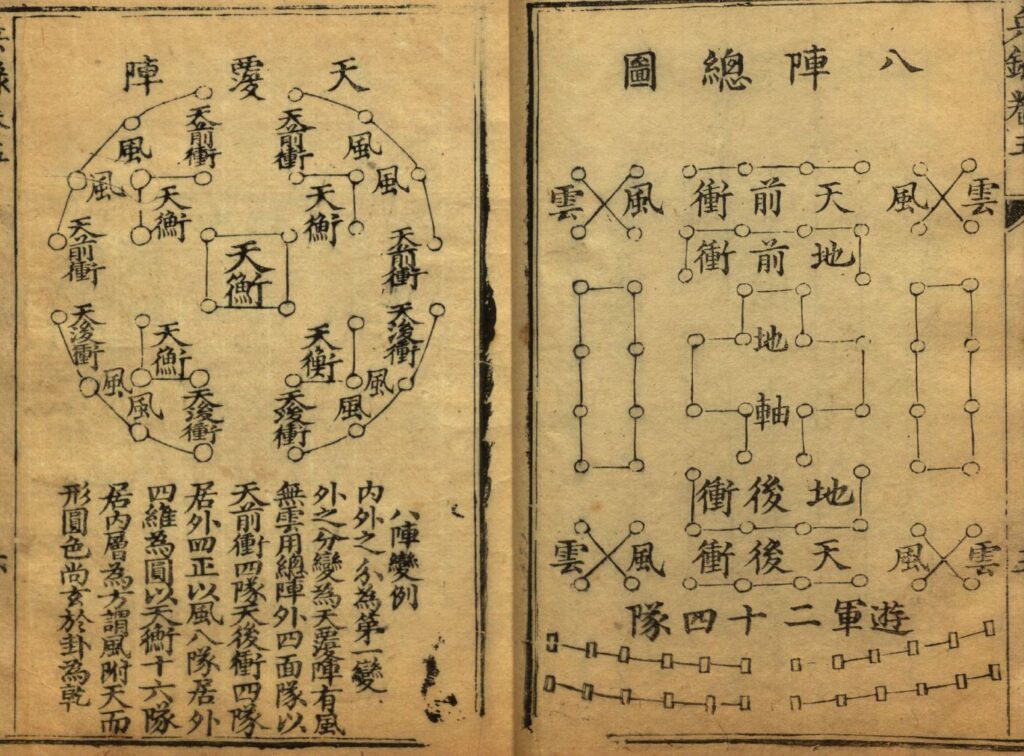 兵錄卷五
八陣總圖
雲 風 天前衝 風 雲
地前衝
地
軸
地後衝
雲 風 天後衝 風 雲
遊軍二十四隊
天覆陣
天前衝 天前衝
風 風
風 風
天衡 天衡
天前衝 天前衝
天衡
天後衝 天後衝
天衡 天衡
風 風
風 風
天後衝 天後衝
八陣變例
内外之分為第一變
外之分變為天覆陣有風
無雲用總陣外四面隊以
天前衝四隊天後衝四隊
居外四正以風八隊居外
四維為圓以天衡十六隊
居内層為方謂風附天而
形圓色尚玄於卦為乾